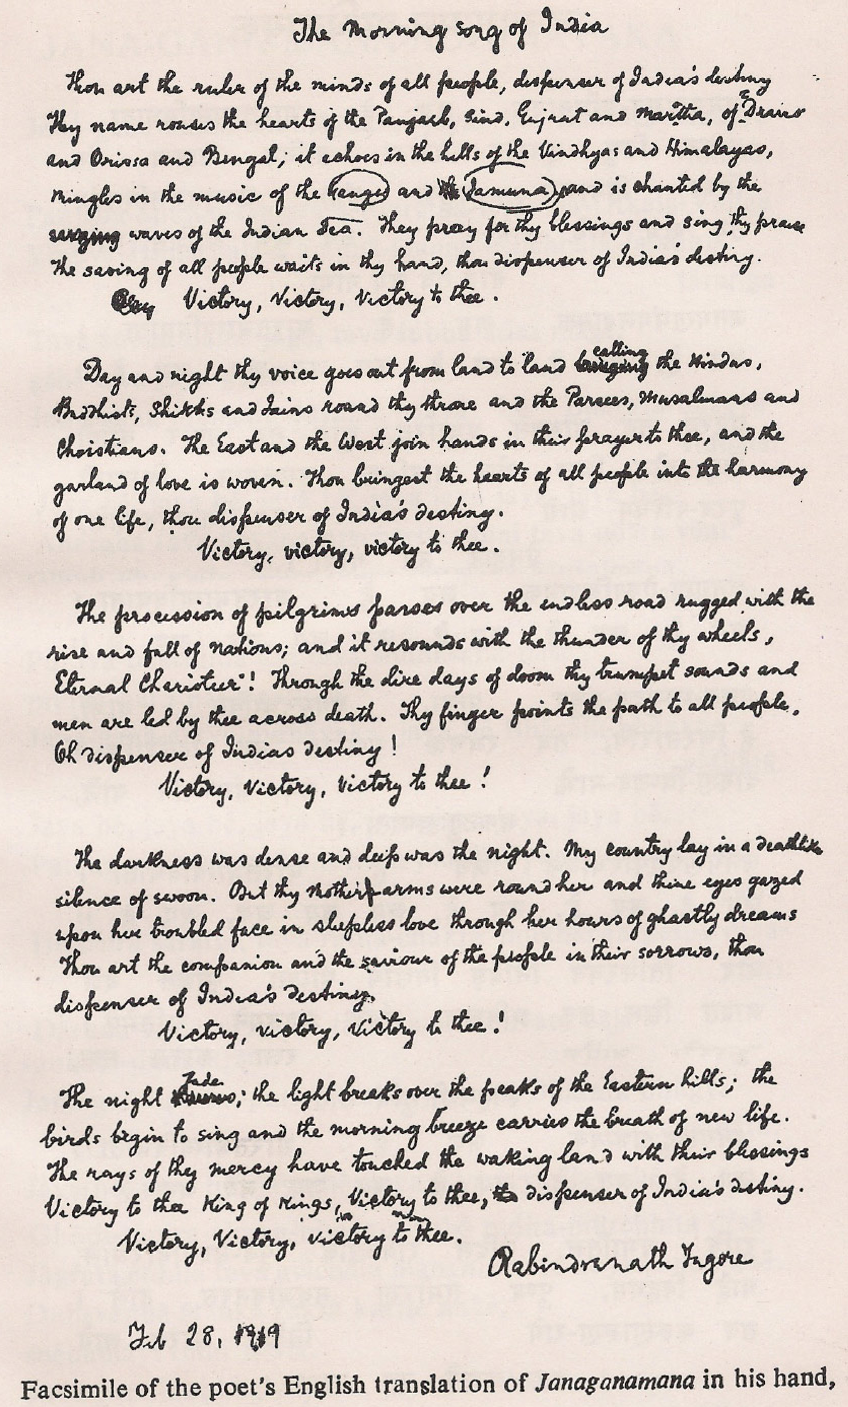 The Morning song of India
Thou art the ruler of the minds of all people, dispenser of India's destiny
Thy name rouses the hearts of the Panjaub, Sind, Gujrat and Maratha, of Dravid
and Orissa and Bengal; it echoes in the hills of the Vindhyas and Himalayas,
mingles in the music of the Ganges and Jamuna and is chanted by the
surging waves of the Indian Sea. They pray for thy blessings and sing thy praise
The saving of all people waits in thy hand, thou dispenser of India's destiny.
Victory, Victory, Victory to thee.
Day and night thy voice goes out from land to land calling the Hindus,
Buddhists, Shikhs and Jains round thy throne and the Parsees, Musalmans and
Christians. The East and the West join hands in their prayer to thee, and the
garland of love is woven. Thou bringest the hearts of all people into the harmony
of one life, thou dispenser of India's destiny.
Victory, victory, victory to thee.
The procession of pilgrims passes over the endless road rugged with the
rise and fall of nations; and it resounds with the thunder of thy wheels,
Eternal Charioteer! Through the dire days of doom thy trumpet sounds and
men are led by thee across death. Thy finger points the path to all people,
Oh dispenser of Indias destiny!
Victory, Victory, Victory to thee!
The darkness was dense and deep was the night. My country lay in a deathlike
silence of swoon. But thy mother arms were round her and thine eyes gazed
upon her troubled face in sleepless love through her hours of ghastly dreams
Thou art the companion and the saviour of the people in their sorrows, thou
dispenser of India's destiny.
Victory, victory, victory to thee!
The night fade; the light breaks over the peaks of the Eastern hills; the
birds begin to sing and the morning breeze carries the breath of new life.
The rays of thy mercy have touched the waking land with their blessings
Victory to thee King of Kings, Victory to thee, dispenser of India's destiny.
Victory, Victory, victory to thee.
Rabindranath Tagore
Feb 28, 1919
Facsimile of the poet's English translation of Janaganamana in his hand,